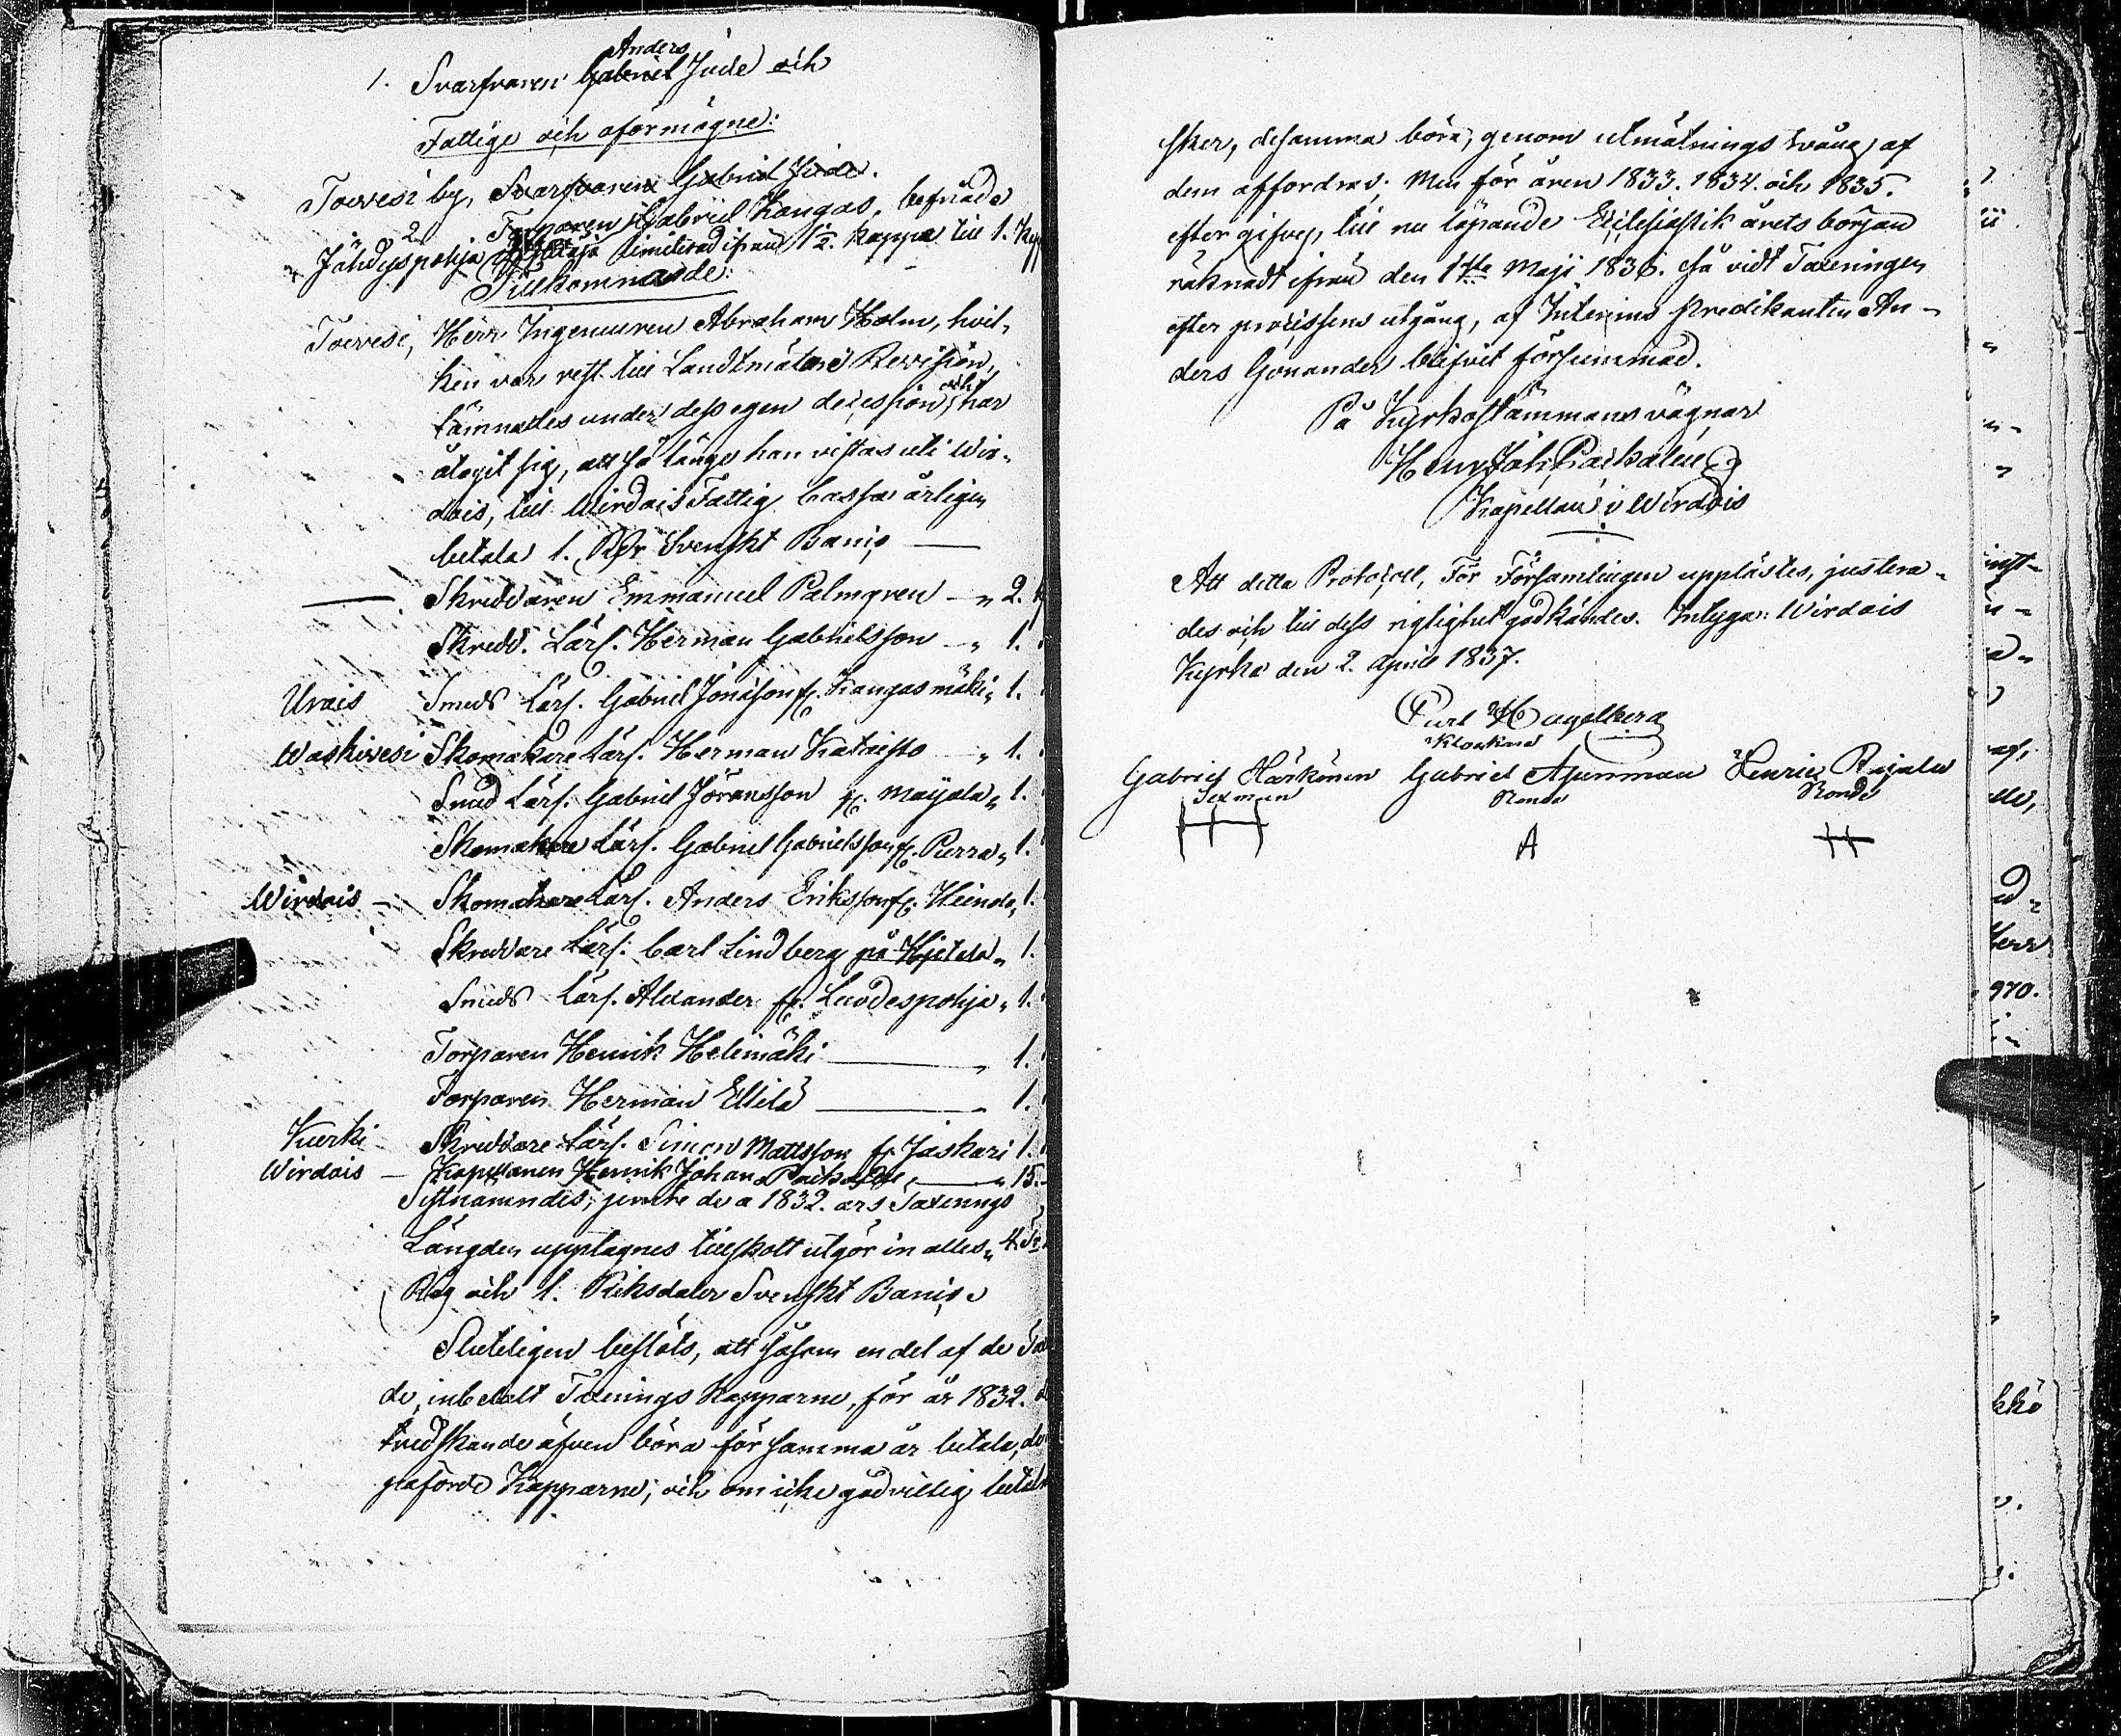 Anders
1. Svarfvaren Gabriel Jude och
Fattige och oförmögne:
Toivesi by, Svarfvaren Gabriel Jude.
2 Torparen Gabriel Kangas, befriade
Jähdyspohja limiterad ifrån 1 1/2 kappa till 1. Kapp
Tillkommande:
Toivesi, Herr Ingenieuren Abraham Holm, hvil-
ken var rest till Landtmäteri Revision,
lämnades under dess egen decession, och har
åtagit sig, att så länge han vistas uti Wir-
dois, till Wirdois Fattig cassa årligen
betala 1. Rdr Svenskt Banco —
— Skreddaren Emmanuel Palmgren — " 2.
Skredd. Lärl. Herman Gabrielsson — " 1.
Urais Smeds Lärl. Gabriel Jonasson fr. Kangasmäki " 1.
Waskivesi Skomakare Lärl. Herman Kataisto — " 1.
Smed Lärl. Gabriel Jöransson fr. Mayala " 1.
Skomakare Lärl. Gabriel Gabrielsson fr. Purra " 1.
Wirdois — Skomakare Lärl. Anders Eriksson fr. Heinola " 1.
Skreddare Lärl. Carl Lindberg på Hietala " 1.
Smeds Lärl. Alexander fr. Luodespohja " 1.
Torparen Henrik Helimäki — " 1.
Torparen Herman Ellilä — " 1.
Kurki — Skreddare Lärl. Simon Mattsson fr. Jaskari 1.
Wirdois — Kapellanen Henrik Johan Packalen, — " 15.
Sistnämndes, jemte de a 1832. års Taxerings
Längden upptagnes tillskott utgör in alles " 4.
Råg och 1. Riksdaler Svenskt Banco
Sluteligen beslöts, att såsom en del af de
de, inbetalt Taxerings Kapparne, för år 1832.
tredskande äfven böra för samma år betala, de
påförde Kapparne; och om icke godvillig betaln
sker, desamma böra, genom utmätnings tvång, af
dem affordras. Men för åren 1833. 1834. och 1835.
efter gifves, till nu löpande Ecclesiastik årets början
räknadt ifrån den 1sta Maji 1836. så vidt Taxeringen
efter processens utgång, af Interims predikanten An-
ders Gonander blifvit försummad.
På Kyrkostämmans vägnar
Henr Joh Packalén
Kapellan i Wirdois
Att detta Protocoll, För Församlingen upplästes, justera-
des och till dess rigtighet godkändes. Intyga: Wirdois
Kyrka den 2. April 1837.
Carl Hagelberg
Klockare
Gabriel Härkönen Gabriel Ajanman Henric Rajala
Sexman Ronde Ronde
A